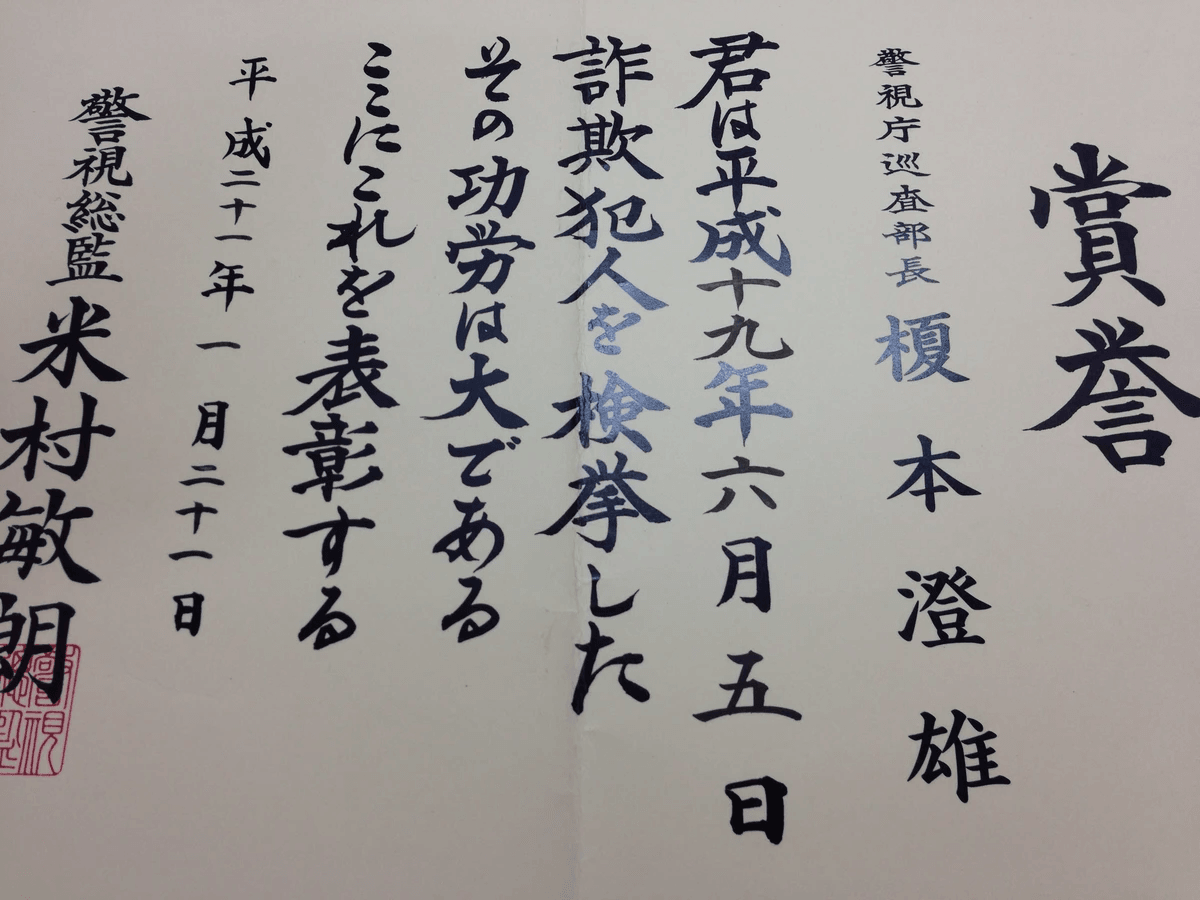 賞誉
警視庁巡査部長 榎本澄雄
君は平成十九年六月五日
詐欺犯人を検挙した
その功労は大である
ここにこれを表彰する
平成二十一年一月二十一日
警視総監 米村敏朗